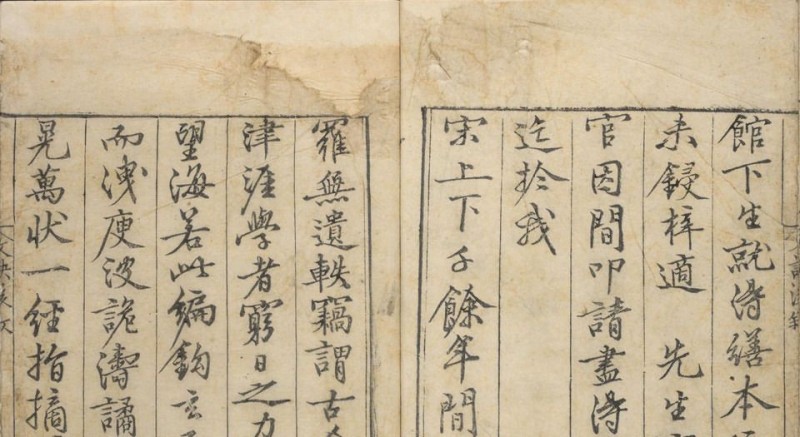 館下生就得繕本
未鋟梓適　先生
官因間叩請盡得
迄於我
宋上下千餘年間
羅無遺軼竊謂古
津涯學者窮日之力
望海若此編鈎玄
而洩庾沒詭濤譎
晃萬狀一經指摘